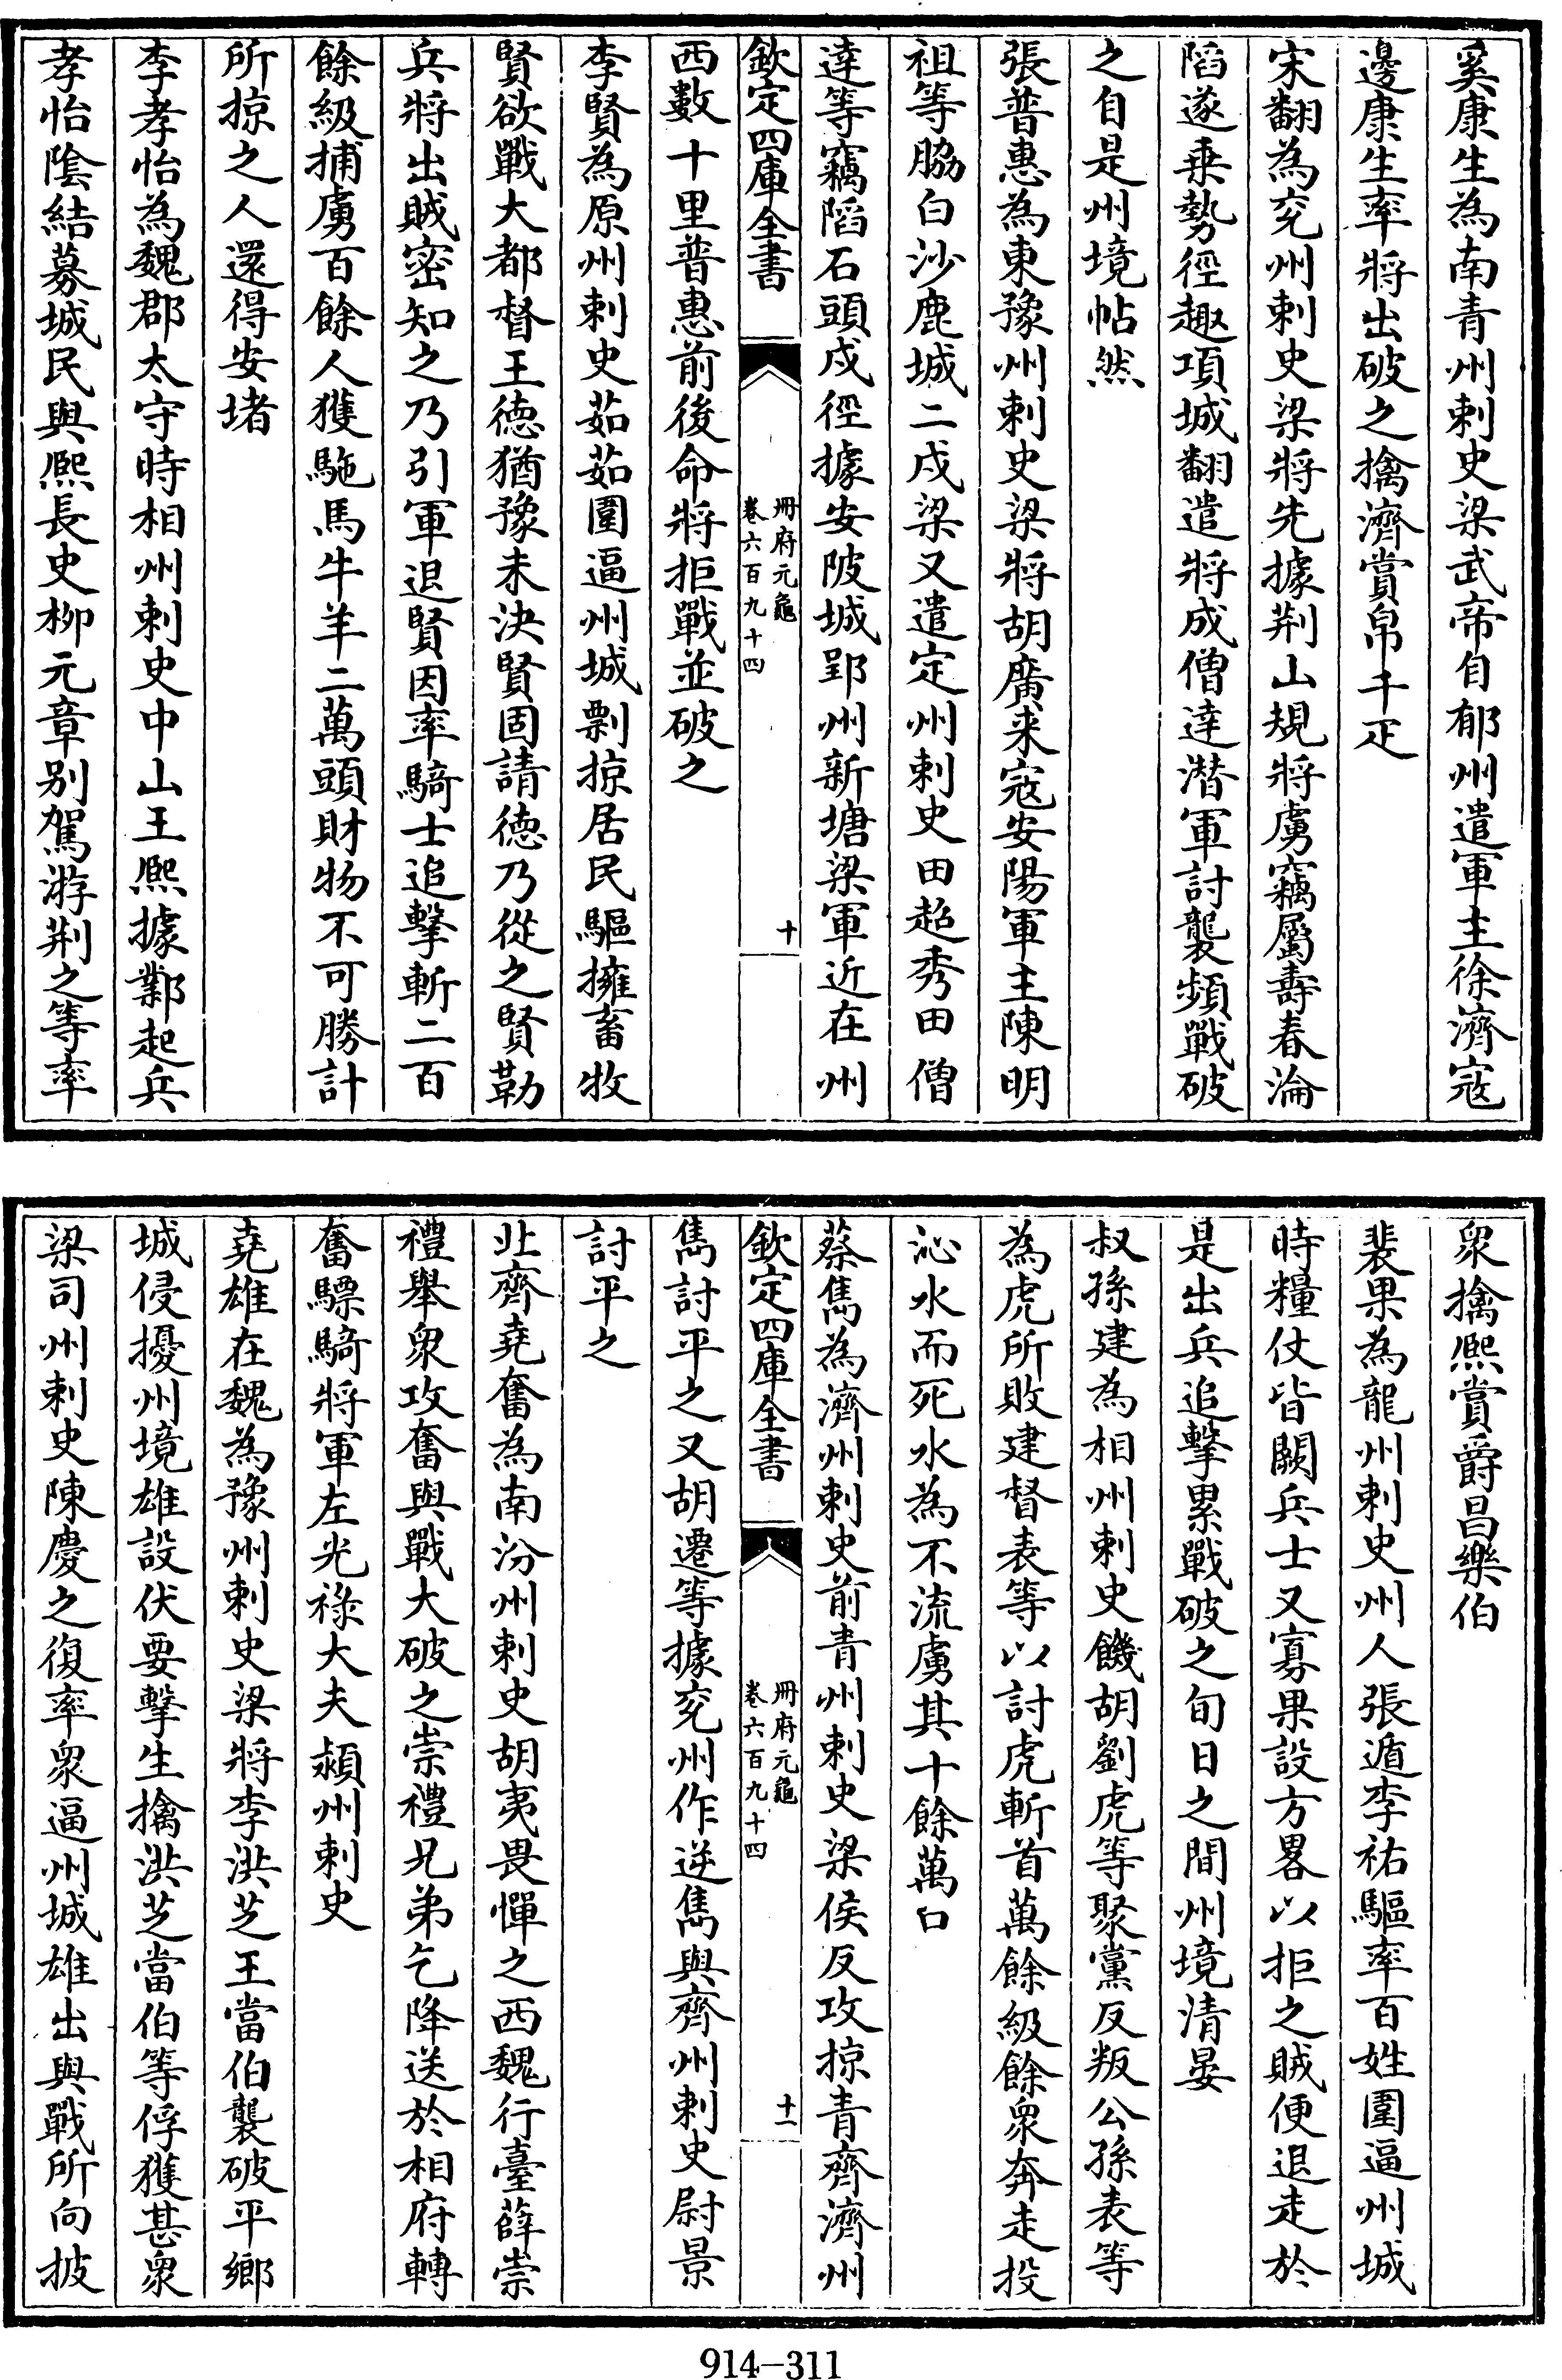 奚康生為南青州刺史梁武帝自郁州遣軍主徐濟寇
邊康生率將出破之擒濟賞帛千疋
宋翻為兖州刺史梁將先據荆山規將虜竊屬壽春淪
䧟遂乗勢徑趣項城翻遣將成僧達潛軍討襲頻戰破
之自是州境帖然
張普惠為東豫州刺史梁將胡廣来寇安陽軍主陳明
祖等脇白沙鹿城二戍梁又遣定州刺史田超秀田僧
達等竊䧟石頭戍徑據安陂城郢州新塘梁軍近在州
欽定四庫全書
冊府元龜
卷六百九十四
十
西數十里普惠前後命將拒戰並破之
李賢為原州刺史茹茹圍逼州城剽掠居民驅擁畜牧
賢欲戰大都督王德猶豫未決賢固請德乃從之賢勒
兵將出賊密知之乃引軍退賢因率騎士追擊斬二百
餘級捕虜百餘人獲駞馬牛羊二萬頭財物不可勝計
所掠之人還得安堵
李孝怡為魏郡太守時相州刺史中山王熙據鄴起兵
孝怡隂結募城民與熙長史柳元章别駕游荆之等率
衆擒熙賞爵昌樂伯
裴果為龍州刺史州人張遁李祐驅率百姓圍逼州城
時糧仗皆闕兵士又寡果設方畧以拒之賊便退走於
是出兵追擊累戰破之旬日之間州境清晏
叔孫建為相州刺史饑胡劉虎等聚黨反叛公孫表等
為虎所敗建督表等以討虎斬首萬餘級餘衆奔走投
沁水而死水為不流虜其十餘萬口
蔡儁為濟州刺史前青州刺史梁侯反攻掠青齊濟州
欽定四庫全書
冊府元龜
卷六百九十四
十一
儁討平之又胡遷等據兖州作逆儁與齊州刺史尉景
討平之
北齊堯奮為南汾州刺史胡夷畏憚之西魏行臺薛崇
禮舉衆攻奮與戰大破之崇禮兄弟乞降送於相府轉
奮驃騎將軍左光祿大夫潁州刺史
堯雄在魏為豫州刺史梁將李洪芝王當伯襲破平鄉
城侵擾州境雄設伏要擊生擒洪芝當伯等俘獲甚衆
梁司州刺史陳慶之復率衆逼州城雄出與戰所向披
914-311